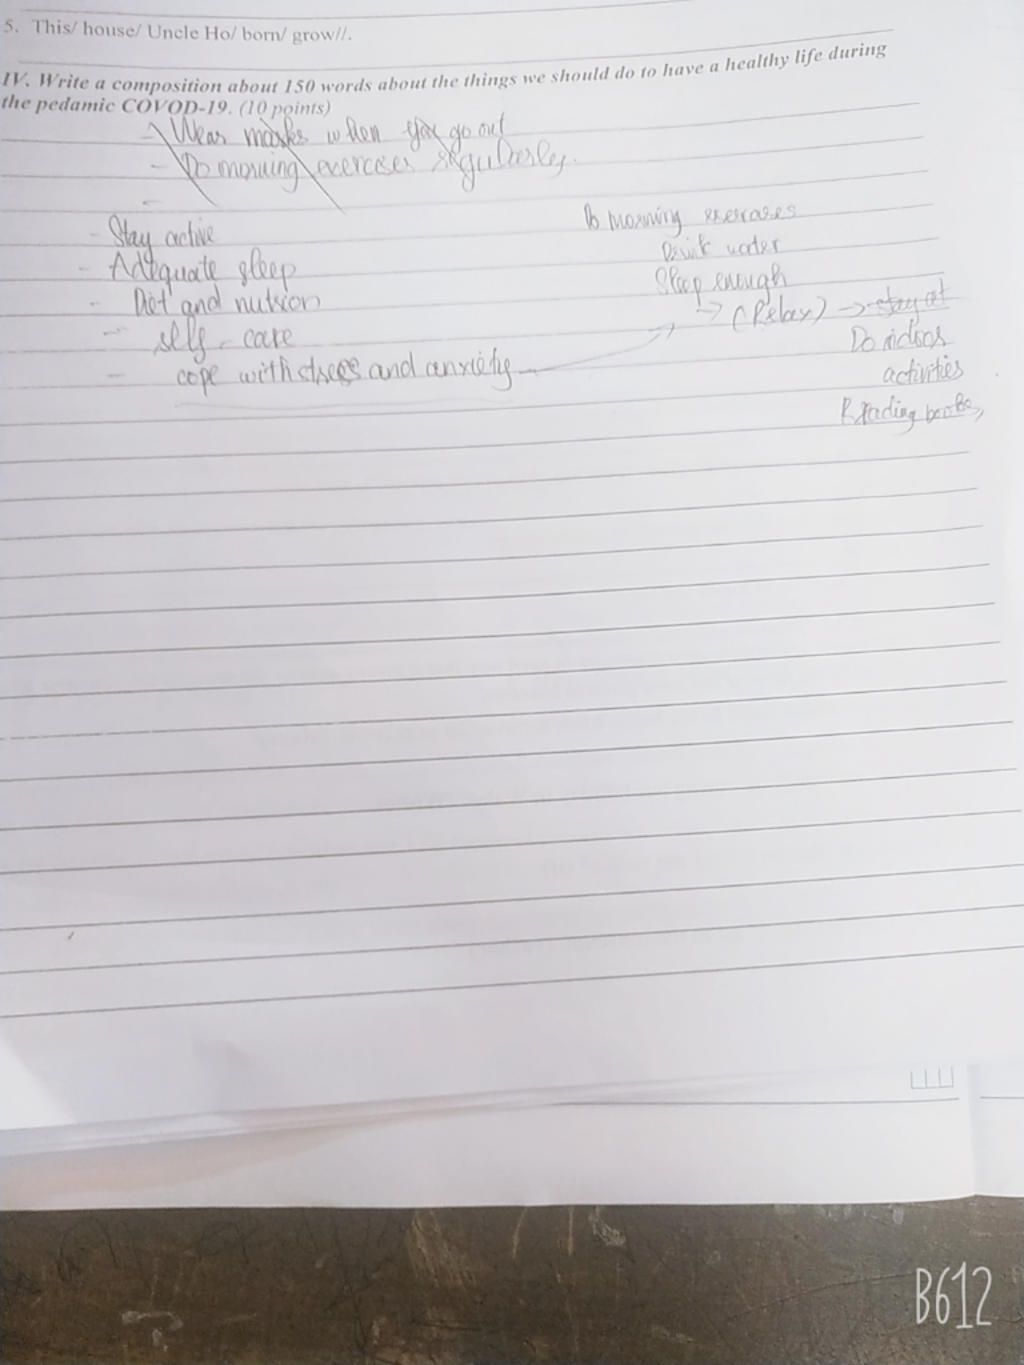 5. This/ house/ Uncle Ho/ born/ grow//.
IV. Write a composition about 150 words about the things we should do to have a healthy life during
the pedamic COVOD-19. (10 points)
- Wear masks when you go out
- Do morning exercises regularly.
-
- Stay active
- Adequate sleep
- Diet and nutrion
- self-care
- cope with stress and anxiety →
Do morning exercises
Drink water
Sleep enough
→ (Relax) → stay at
Do indoor
activities
Reading books,
B612